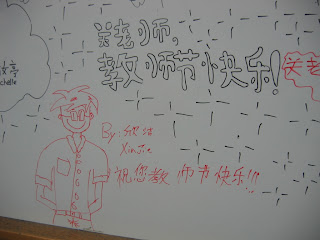 关老师,
教师节快乐!
关老
亭
chelle
By:
XinJie
祝您教师节快乐!!!